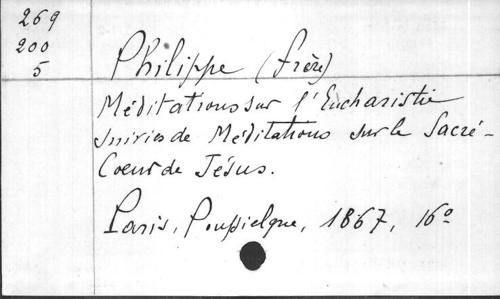 269
200
5
Philippe (frère)
Méditations sur l'Eucharistie
suivies de Méditations sur le Sacré-
Coeur de Jésus.
Paris, Poussielgue, 1867, 16º